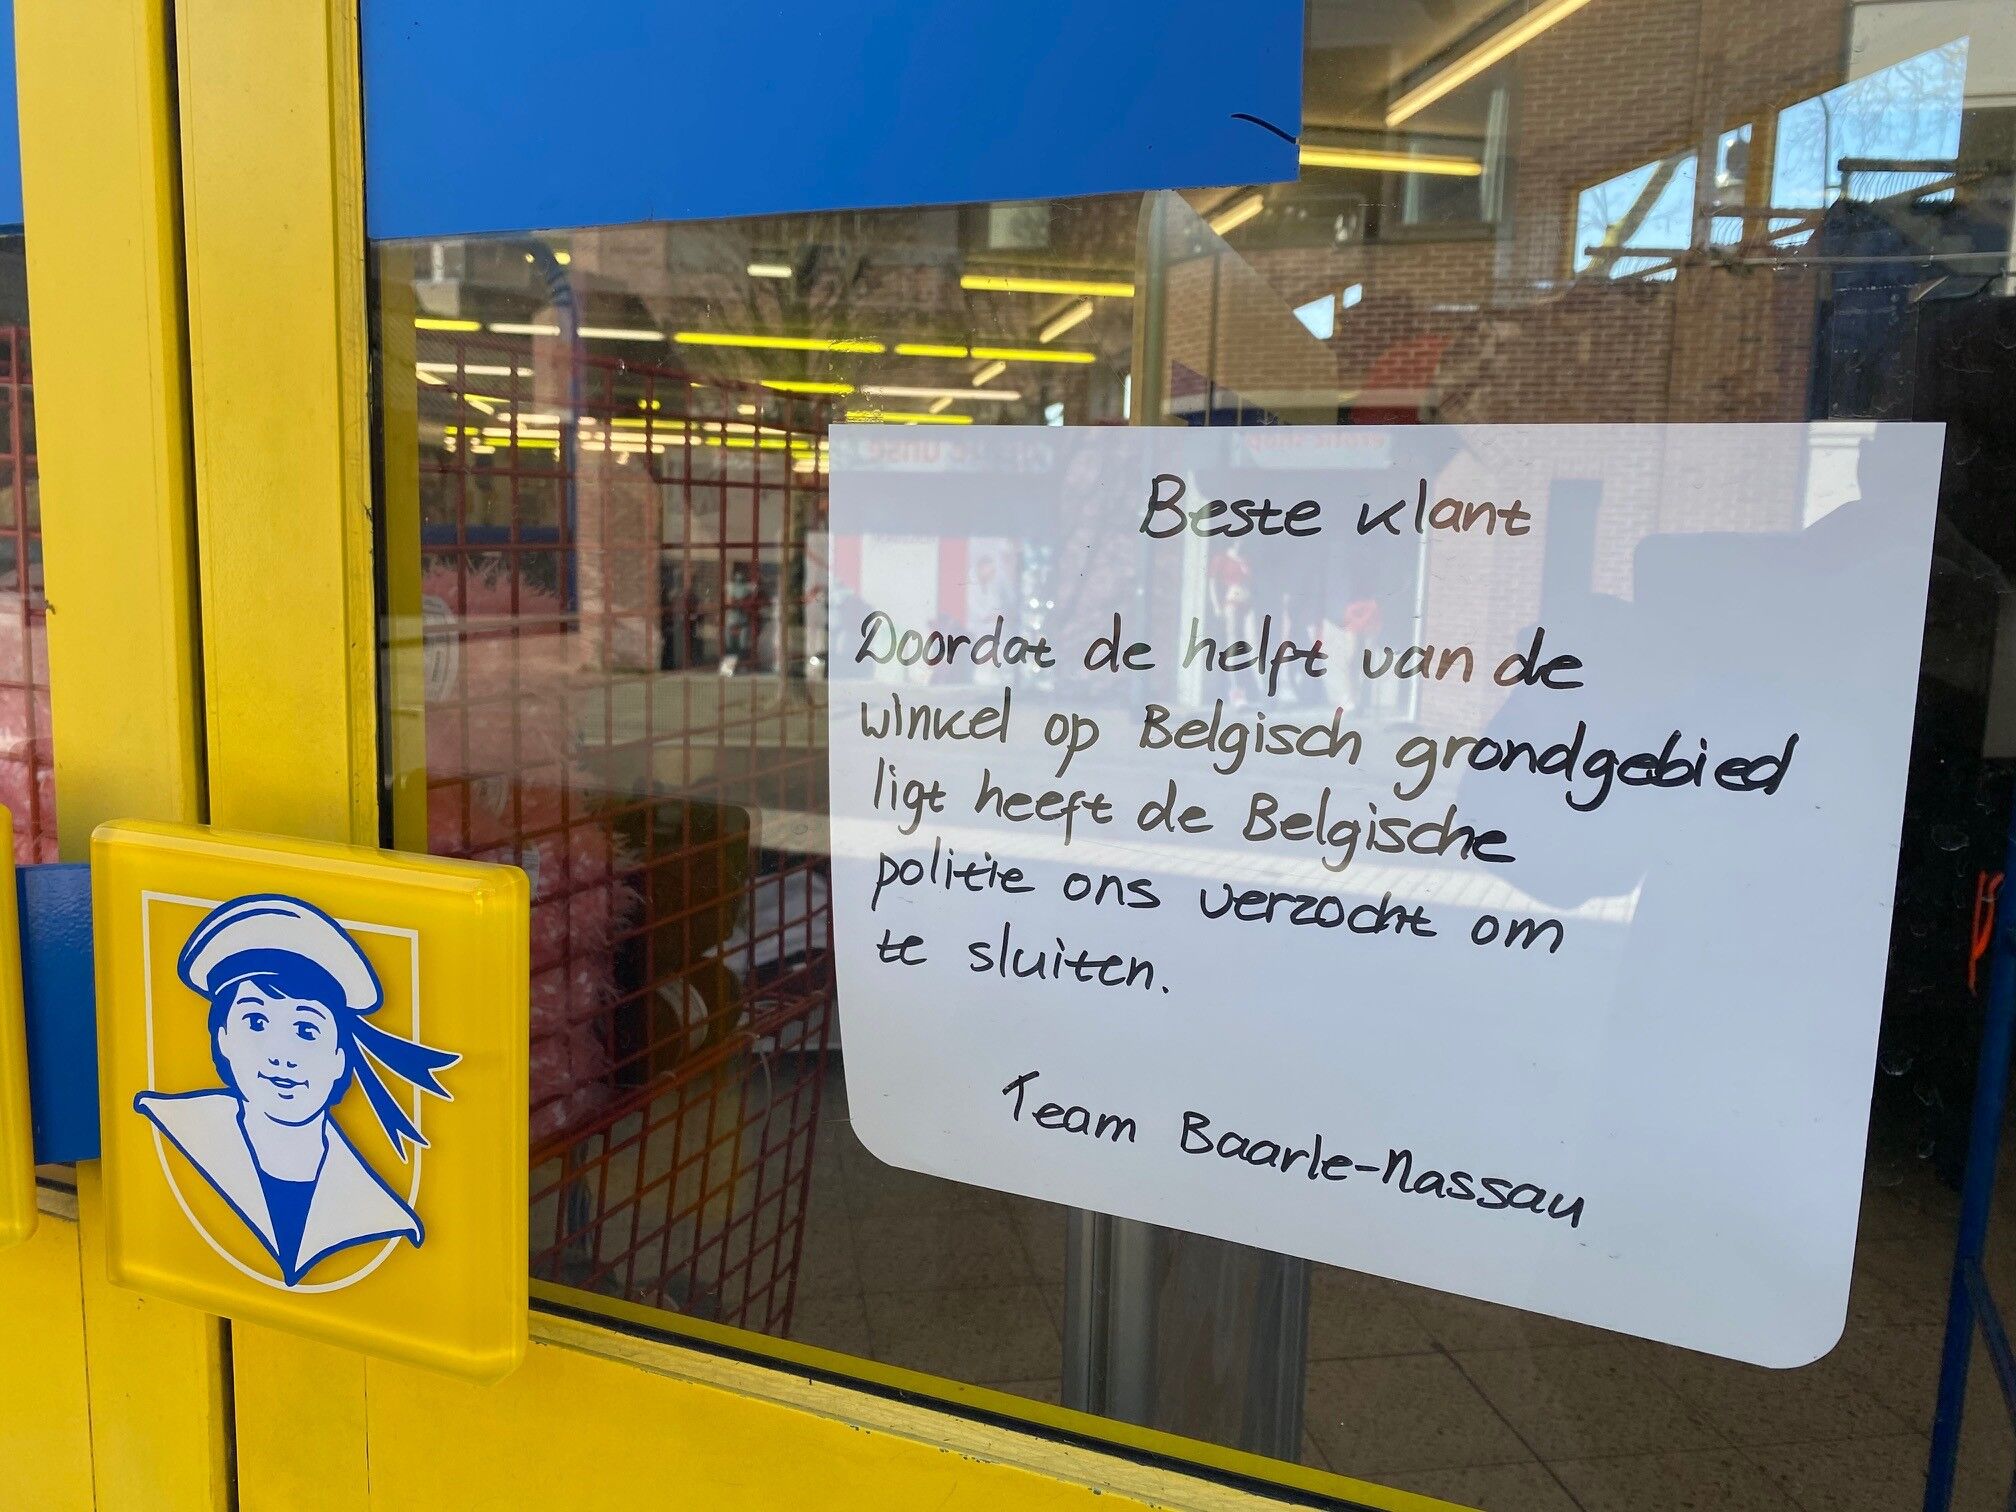 Beste klant
Doordat de helft van de
winkel op Belgisch grondgebied
ligt heeft de Belgische
politie ons verzocht om
te sluiten.
Team Baarle-Nassau